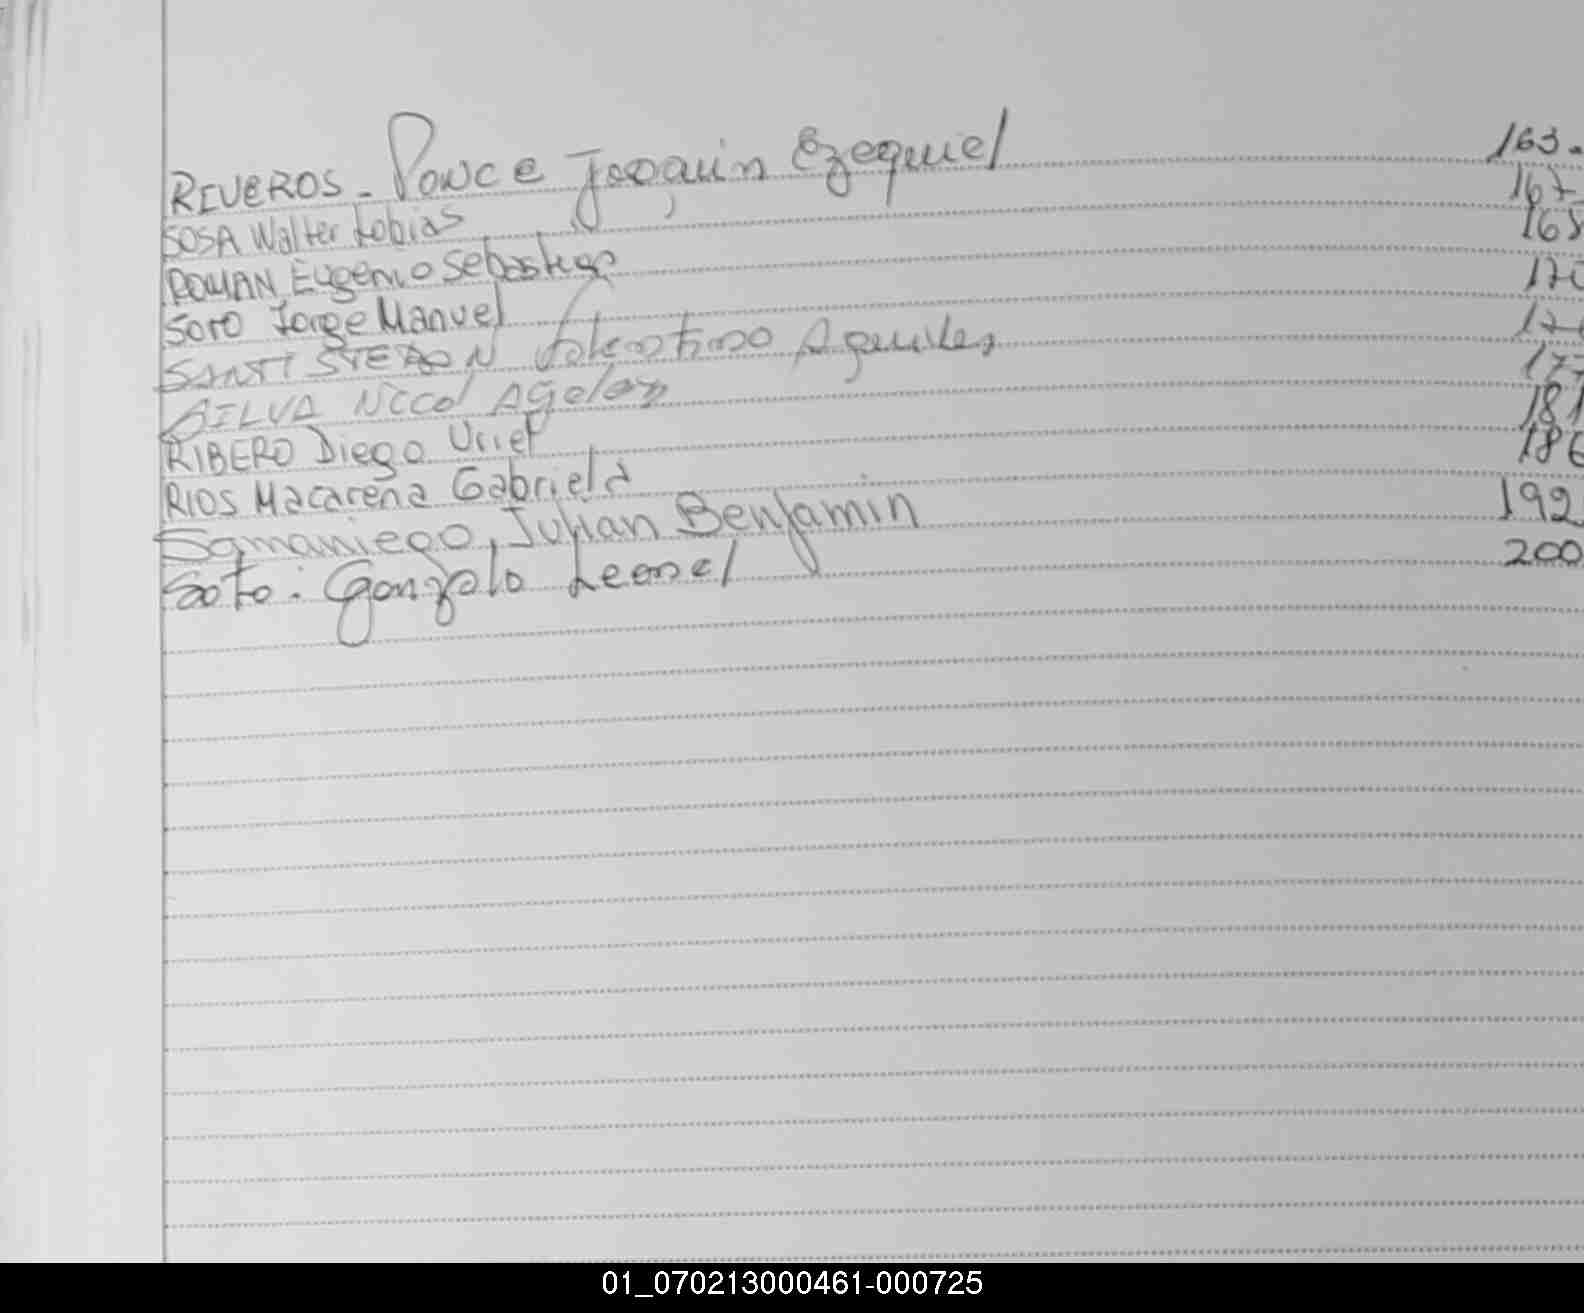 RIVEROS - Ponce Joaquin Ezequiel 163.
SOSA Walter Tobias 167
ROMAN Eugenio Sebastian 168
SOTO Jorge Manuel 170
SANTISTEBAN Valentino Aquiles 17
SILVA Nicol 177
RIBERO Diego Uriel 181
RIOS Macarena Gabriela 186
Samaniego, Julian Benjamin 192
Soto: Gonzalo Leonel 200
01_070213000461-000725